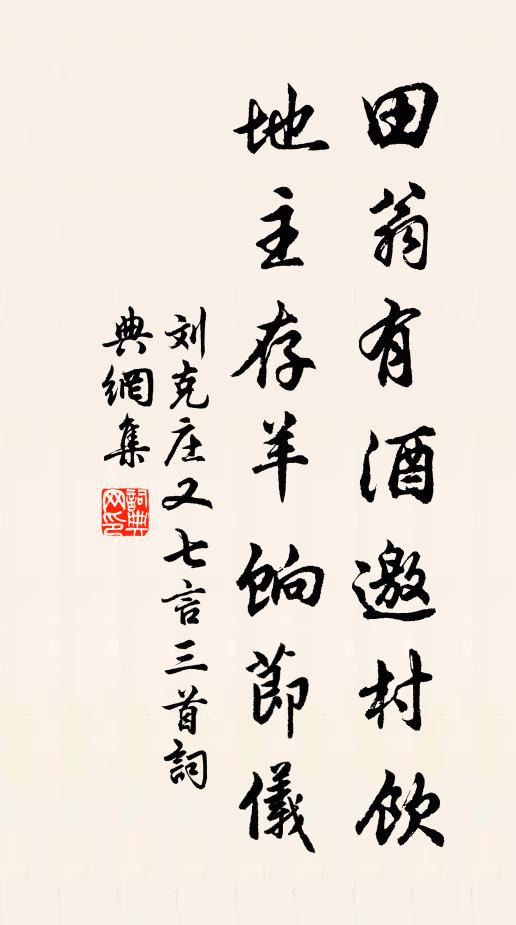 田翁有酒邀村飲
地主存羊餉節儀
刘克庄又七言三首詞
典網集
詞典
网印